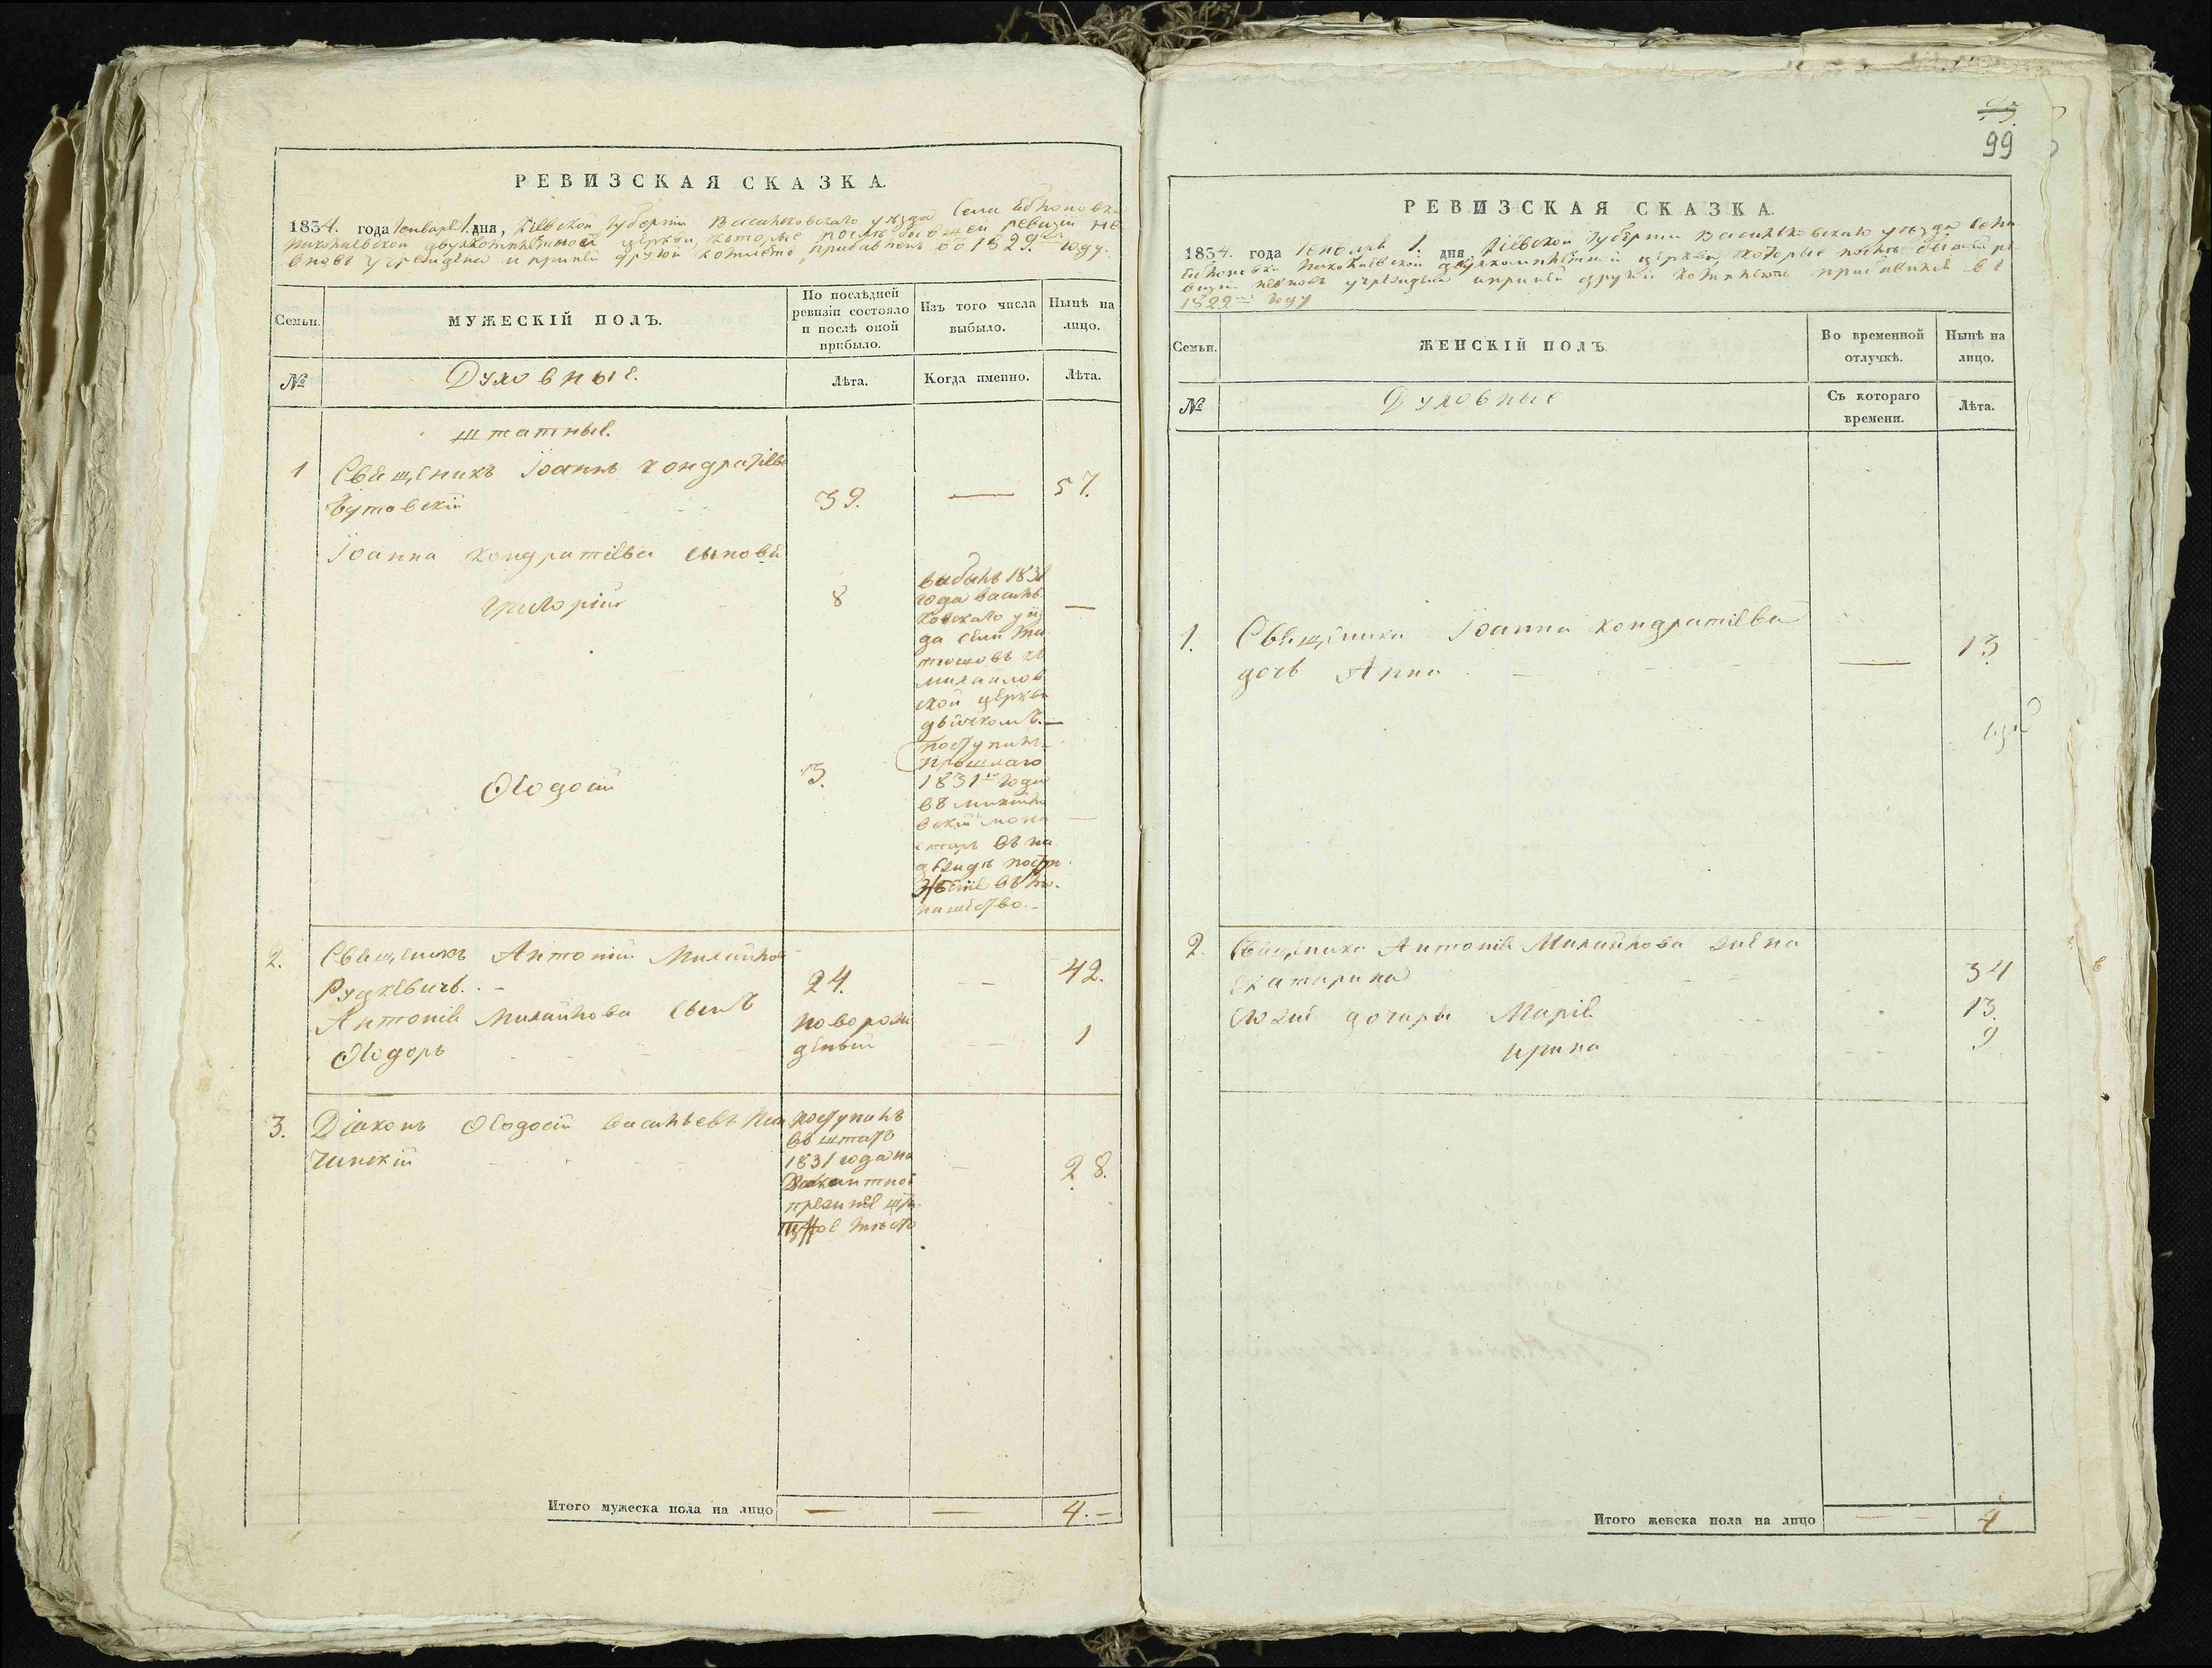 РЕВИЗСКАЯ СКАЗКА.
1834. года Генваря 1. дня, Кіевской Губерніи Васильковскаго уезда Села
Николаевской двухкомплектной церкви, которые после бывшей ревизіи не
вновь учреждена и причтъ другой комплетъ прибавленъ въ 1829м году.
Семьи.
МУЖЕСКІЙ ПОЛЪ.
По послѣдней
ревизіи состояло
и послѣ оной
прибыло.
Изъ того числа
выбыло.
Нынѣ на
лицо.
№
Духовные.
Лѣта.
Когда именно.
Лѣта.
штатные.
1 Священикъ Іоаннъ Кондратіевъ
Бутовскій 39. — 57.
Іоанна Кондратіева сыновя
Григорій 8 —
выбылъ 1831
года Василь
ковскаго уез
да села
михайлов
ской церкви
дьячкомъ. —
Ѳеодосій 3. —
поступилъ
прошлаго
1831го года
въ
вскій мона
стырь въ на
деждѣ постри
женіе въ мо-
нашество. -
2. Священикъ Антоній Михайлов
Рудкевичъ. - 24. - - 42.
Антонія Михайлова сынъ
Ѳеодоръ новорож
денный - - 1
3. Діаконъ Ѳеодосій Васильевъ
чинскій 28.
поступилъ
въ штатъ
1831 года на
вакантное
прежнее
мѣсто
Итого мужеска пола на лицо — — 4. -
99
РЕВИЗСКАЯ СКАЗКА.
1834. года Генваря 1. дня Кіевской Губерніи Васильковскаго уезда села
Николаевской двухкомплетной церкви, которые послѣ бывшей ре
визіи вновь учреждена и причтъ другій комплетъ прибавленъ въ
1829мъ году
Семьи.
ЖЕНСКІЙ ПОЛЪ.
Во временной
отлучкѣ.
Нынѣ на
лицо.
№
Духовные
Съ котораго
времени.
Лѣта.
1. Священика Іоанна Кондратіева
дочь Анна — 13
2. Священика Антонія Михайлова жена
Екатерина 34
Его же дочери Марія 13.
Ирина 9
Итого женска пола на лицо — — 4